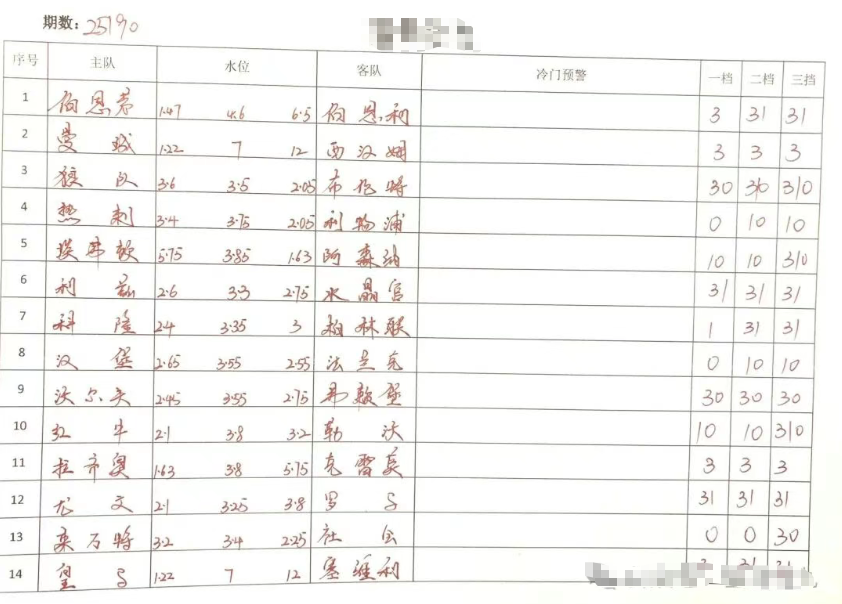 期数：25190
序号 主队 水位 客队 冷门预警 一档 二档 三挡
1 伯恩茅 1.47 4.6 6.5 伯恩利 3 31 31
2 曼城 1.22 7 12 西汉姆 3 3 3
3 狼队 3.6 3.5 2.05 布伦特 30 30 310
4 热刺 3.4 3.75 2.05 利物浦 0 10 10
5 埃弗顿 5.75 3.85 1.63 阿森纳 10 10 310
6 利兹 2.6 3.3 2.75 水晶宫 31 31 31
7 科隆 2.4 3.35 3 柏林联 1 31 31
8 汉堡 2.65 3.55 2.55 法兰克 0 10 10
9 沃尔夫 2.45 3.55 2.75 弗赖堡 30 30 30
10 红牛 2.1 3.8 3.2 勒沃 10 10 310
11 拉齐奥 1.63 3.8 5.75 克雷莫 3 3 3
12 尤文 2.1 3.25 3.8 罗马 31 31 31
13 莱万特 3.2 3.4 2.25 社会 0 0 30
14 皇马 1.22 7 12 塞维利